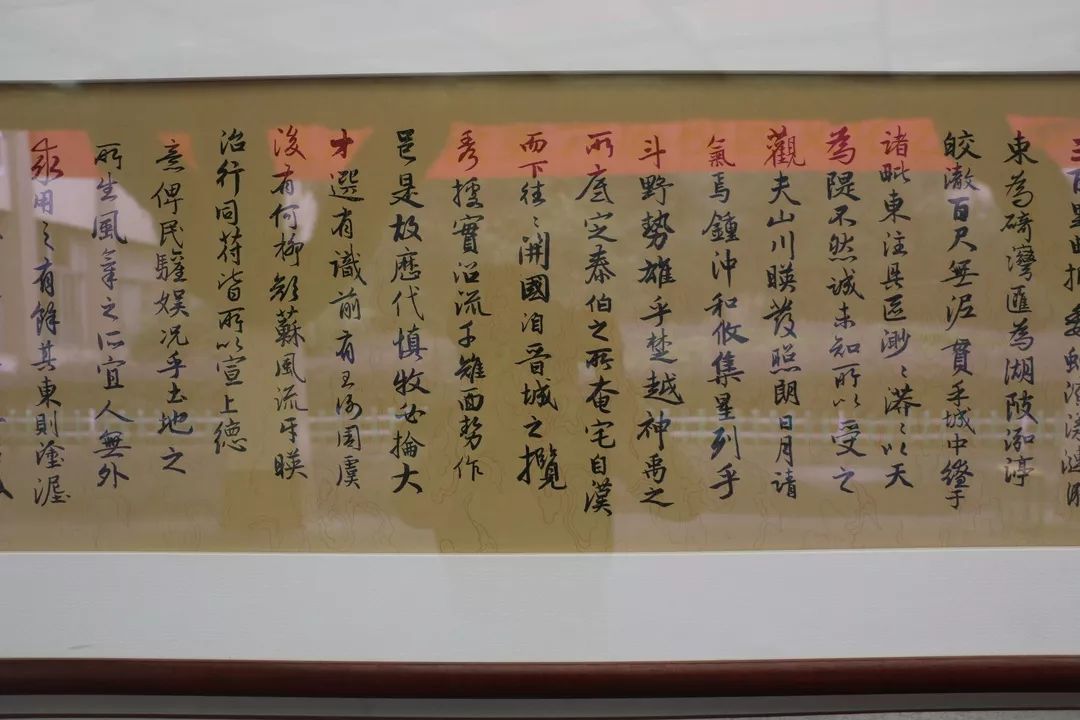 東為碕灣匯為湖陂泓渟
皎澈百尺無泥貫乎城中繚于
諸毗東注具區渺〻漭〻以天
為隄不然誠未知所以受之
觀夫山川暎發照朗日月請
氣焉鍾沖和攸集星列乎
斗野勢雄乎楚越神禹之
所底定泰伯之所奄宅自漢
而下往〻開國洎晉城之攬
秀據實沿流千雉面勢作
邑是故歷代慎牧必掄大
才選有識前有王洵周虞
後有何柳彭蘇風流乎暎
治行同符皆所以宣上德
意俾民驩娛况乎土地之
所生風氣之所宜人無外
求用之有餘其東則塗渥